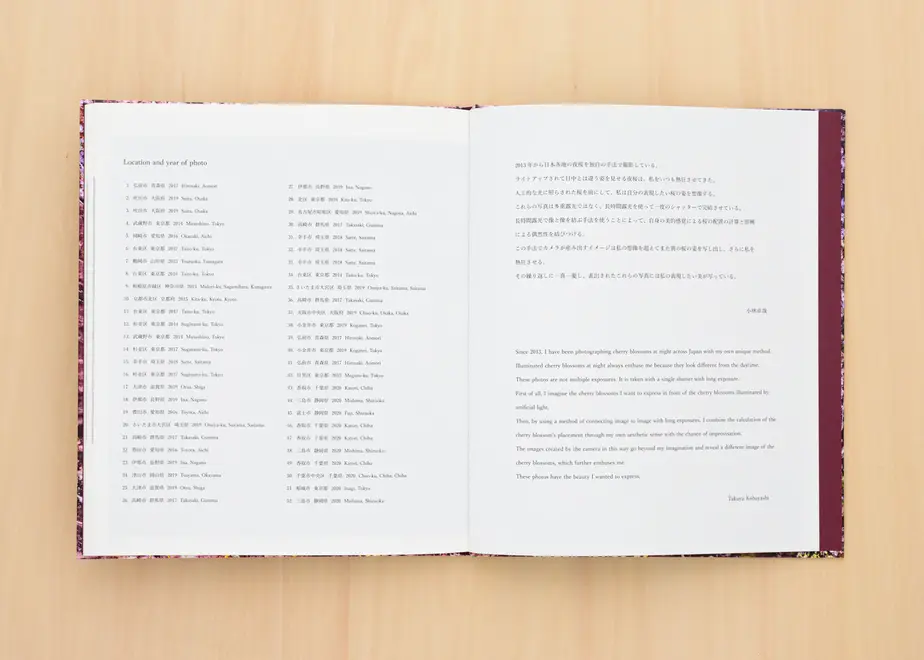 Location and year of photo
1 弘前市 青森県 2017 Hirosaki, Aomori
2 吹田市 大阪府 2019 Suita, Osaka
3 吹田市 大阪府 2019 Suita, Osaka
4 武蔵野市 東京都 2014 Musashino, Tokyo
5 岡崎市 愛知県 2016 Okazaki, Aichi
6 台東区 東京都 2015 Taito-ku, Tokyo
7 鶴岡市 山形県 2022 Tsuruoka, Yamagata
8 台東区 東京都 2015 Taito-ku, Tokyo
9 相模原市緑区 神奈川県 2015 Midori-ku, Sagamihara, Kanagawa
10 京都市北区 京都府 2015 Kita-ku, Kyoto, Kyoto
11 台東区 東京都 2017 Taito-ku, Tokyo
12 杉並区 東京都 2014 Suginami-ku, Tokyo
13 武蔵野市 東京都 2014 Musashino, Tokyo
14 杉並区 東京都 2017 Suginami-ku, Tokyo
15 幸手市 埼玉県 2018 Satte, Saitama
16 杉並区 東京都 2017 Suginami-ku, Tokyo
17 大津市 滋賀県 2019 Otsu, Shiga
18 伊那市 長野県 2019 Ina, Nagano
19 豊田市 愛知県 2016 Toyota, Aichi
20 さいたま市大宮区 埼玉県 2019 Omiya-ku, Saitama, Saitama
21 高崎市 群馬県 2017 Takasaki, Gunma
22 豊田市 愛知県 2016 Toyota, Aichi
23 伊那市 長野県 2019 Ina, Nagano
24 津山市 岡山県 2019 Tsuyama, Okayama
25 大津市 滋賀県 2018 Otsu, Shiga
26 高崎市 群馬県 2017 Takasaki, Gunma
27 伊那市 長野県 2019 Ina, Nagano
28 北区 東京都 2016 Kita-ku, Tokyo
29 名古屋市昭和区 愛知県 2019 Showa-ku, Nagoya, Aichi
30 高崎市 群馬県 2017 Takasaki, Gunma
31 幸手市 埼玉県 2018 Satte, Saitama
32 幸手市 埼玉県 2018 Satte, Saitama
33 幸手市 埼玉県 2018 Satte, Saitama
34 台東区 東京都 2014 Taito-ku, Tokyo
35 さいたま市大宮区 埼玉県 2019 Omiya-ku, Saitama, Saitama
36 高崎市 群馬県 2017 Takasaki, Gunma
37 大阪市中央区 大阪府 2019 Chuo-ku, Osaka, Osaka
38 小金井市 東京都 2019 Koganei, Tokyo
39 弘前市 青森県 2017 Hirosaki, Aomori
40 小金井市 東京都 2019 Koganei, Tokyo
41 弘前市 青森県 2017 Hirosaki, Aomori
42 目黒区 東京都 2022 Meguro-ku, Tokyo
43 香取市 千葉県 2020 Katori, Chiba
44 三島市 静岡県 2020 Mishima, Shizuoka
45 富士市 静岡県 2020 Fuji, Shizuoka
46 香取市 千葉県 2020 Katori, Chiba
47 香取市 千葉県 2020 Katori, Chiba
48 三島市 静岡県 2020 Mishima, Shizuoka
49 香取市 千葉県 2020 Katori, Chiba
50 千葉市中央区 千葉県 2020 Chuo-ku, Chiba, Chiba
51 稲城市 東京都 2020 Inagi, Tokyo
52 三島市 静岡県 2020 Mishima, Shizuoka
2013年から日本各地の夜桜を独自の手法で撮影している。
ライトアップされて日中とは違う姿を見せる夜桜は、私をいつも熱狂させてきた。
人工的な光に照らされた桜を前にして、私は自分の表現したい桜の姿を想像する。
これらの写真は多重露光ではなく、長時間露光を使って一度のシャッターで完結させている。
長時間露光で像と像を結ぶ手法を使うことによって、自身の美的感覚による桜の配置の計算と即興
による偶然性を結びつける。
この手法でカメラが産み出すイメージは私の想像を超えてまた別の桜の姿を写し出し、さらに私を
熱狂させる。
その繰り返しに一喜一憂し、表出されたこれらの写真には私の表現したい美が写っている。
小林卓哉
Since 2013, I have been photographing cherry blossoms at night across Japan with my own unique method.
Illuminated cherry blossoms at night always enthuse me because they look different from the daytime.
These photos are not multiple exposures. It is taken with a single shutter with long exposure.
First of all, I imagine the cherry blossoms I want to express in front of the cherry blossoms illuminated by
artificial light.
Then, by using a method of connecting image to image with long exposures, I combine the calculation of the
cherry blossom's placement through my own aesthetic sense with the chance of improvisation.
The images created by the camera in this way go beyond my imagination and reveal a different image of the
cherry blossoms, which further enthuses me.
These photos have the beauty I wanted to express.
Takuya kobayashi